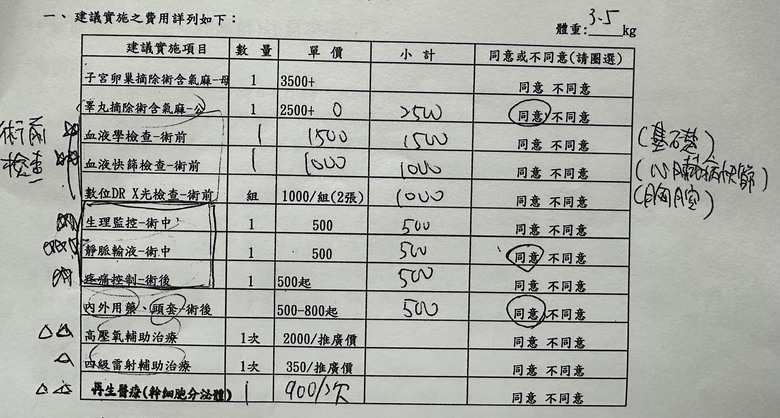 一、建議實施之費用詳列如下：
體重:3.5kg
建議實施項目 數量 單價 小計 同意或不同意(請圈選)
子宮卵巢摘除術含氣麻-母 1 3500+ 同意 不同意
睪丸摘除術含氣麻-公 1 2500+ 0 2500 同意 不同意
術前 血液學檢查-術前 1 1500 1500 同意 不同意 (基礎)
檢查 血液快篩檢查-術前 1 1000 1000 同意 不同意 (心臟病快篩)
數位DR X光檢查-術前 組 1000/組(2張) 1000 同意 不同意 (胸腔)
生理監控-術中 1 500 500 同意 不同意
靜脈輸液-術中 1 500 500 同意 不同意
疼痛控制-術後 1 500起 500 同意 不同意
內外用藥、頭套-術後 500-800起 500 同意 不同意
△△ 高壓氧輔助治療 1次 2000/推廣價 同意 不同意
△ 四級雷射輔助治療 1次 350/推廣價 同意 不同意
△△ 再生醫療(幹細胞分泌體) 1 900/次 同意 不同意